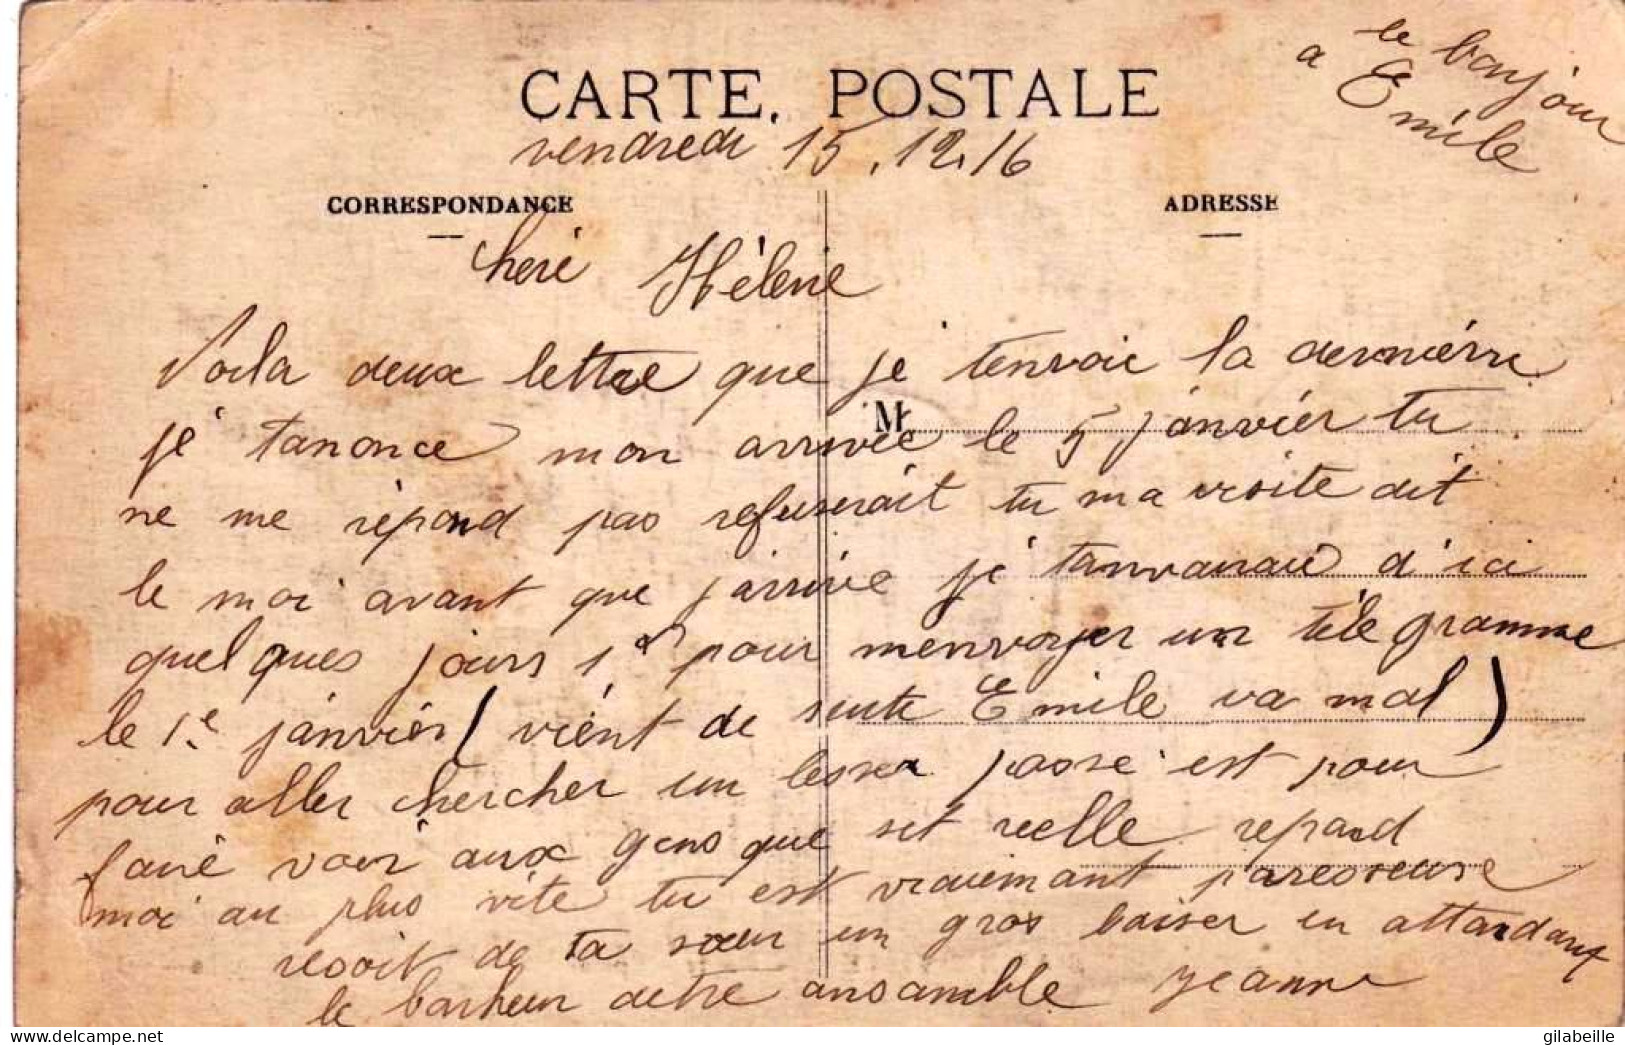 le bonjour
a Emile
CARTE POSTALE
vendredi 15.12.16
CORRESPONDANCE
ADRESSE
cheré Hélène
Voila deux lettre que je tenvoie la derniérre
M
je tanonce mon arrivée le 5 janvier tu
ne me répond pas refuserait tu ma visite dit
le moi avant que jarrive je tanvarrai d'ici
quelques jours 1 d pour menvoyer un télégramme
le 1e janvier (vient de suite Emile va mal)
pour aller chercher un lesser passé est pour
fairé voir aux gens que set réelle repond
moi au plus vite tu est vraiemant pareseuse
resoit de ta sœur un gros baiser en attandant
le bonheur detre ansamble Jeanne
delcampe.net
gilabeille